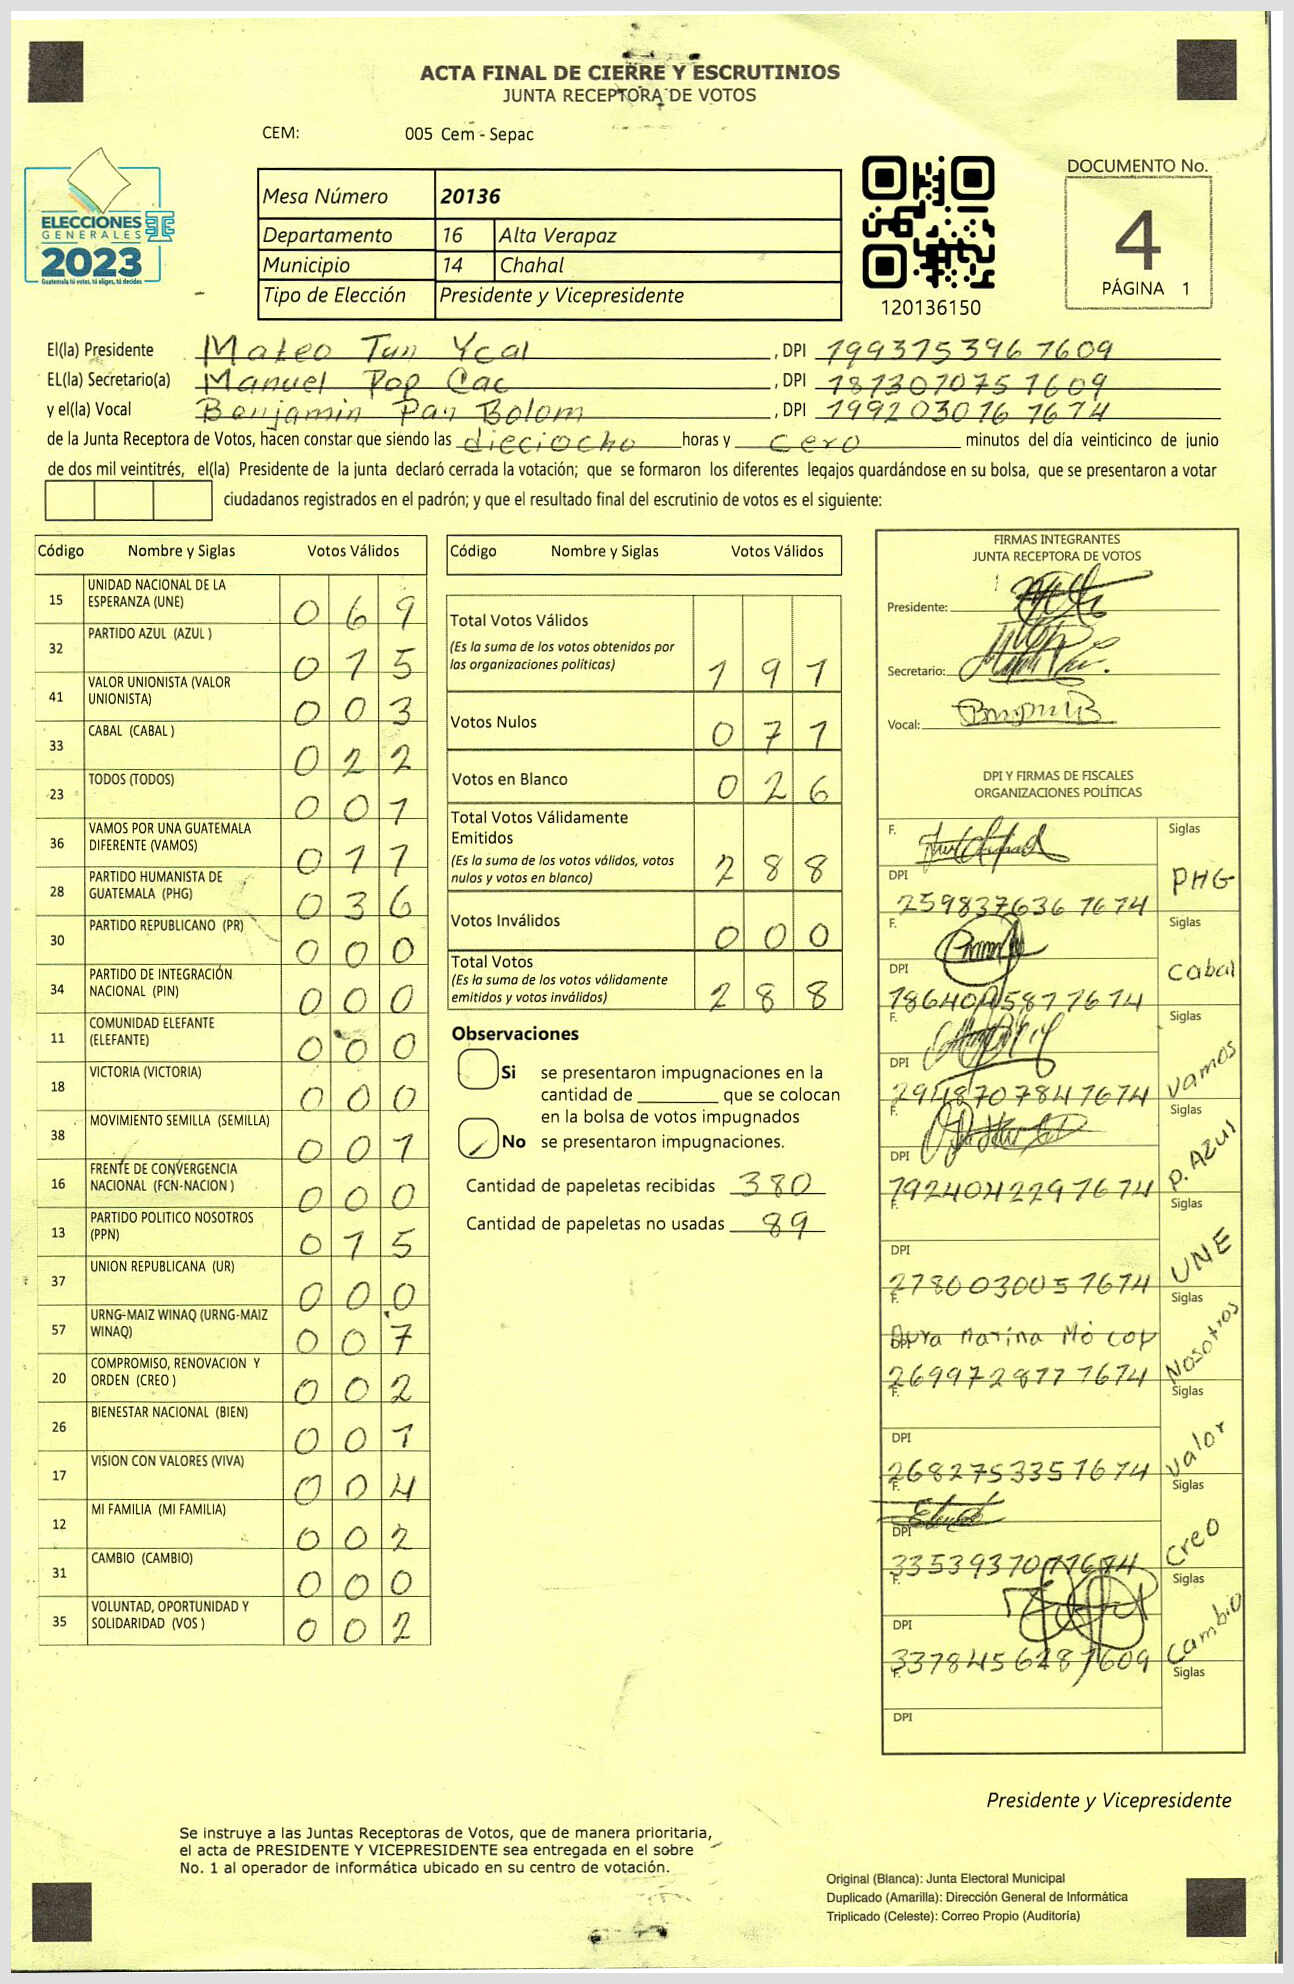 ACTA FINAL DE CIERRE Y ESCRUTINIOS
JUNTA RECEPTORA DE VOTOS
CEM: 005 Cem - Sepac
ELECCIONES
GENERALES
2023
Guatemala tú votas, tú eliges, tú decides
Mesa Número 20136
Departamento 16 Alta Verapaz
Municipio 14 Chahal
Tipo de Elección Presidente y Vicepresidente
120136150
DOCUMENTO No.
4
PÁGINA 1
El(la) Presidente Mateo Tun Ycal, DPI 199375396 1609
EL(la) Secretario(a) Manuel Pop Cac, DPI 187301075 1609
y el(la) Vocal Benjamin Pan Bolom, DPI 199203016 1614
de la Junta Receptora de Votos, hacen constar que siendo las dieciocho horas y cero minutos del día veinticinco de junio
de dos mil veintitrés, el(la) Presidente de la junta declaró cerrada la votación; que se formaron los diferentes legajos quardándose en su bolsa, que se presentaron a votar
ciudadanos registrados en el padrón; y que el resultado final del escrutinio de votos es el siguiente:
Código Nombre y Siglas Votos Válidos
15 UNIDAD NACIONAL DE LA ESPERANZA (UNE) 0 6 9
32 PARTIDO AZUL (AZUL ) 0 1 5
41 VALOR UNIONISTA (VALOR UNIONISTA) 0 0 3
33 CABAL (CABAL ) 0 2 2
23 TODOS (TODOS) 0 0 1
36 VAMOS POR UNA GUATEMALA DIFERENTE (VAMOS) 0 1 1
28 PARTIDO HUMANISTA DE GUATEMALA (PHG) 0 3 6
30 PARTIDO REPUBLICANO (PR) 0 0 0
34 PARTIDO DE INTEGRACIÓN NACIONAL (PIN) 0 0 0
11 COMUNIDAD ELEFANTE (ELEFANTE) 0 0 0
18 VICTORIA (VICTORIA) 0 0 0
38 MOVIMIENTO SEMILLA (SEMILLA) 0 0 1
16 FRENTE DE CONVERGENCIA NACIONAL (FCN-NACION ) 0 0 0
13 PARTIDO POLITICO NOSOTROS (PPN) 0 1 5
37 UNION REPUBLICANA (UR) 0 0 0
57 URNG-MAIZ WINAQ (URNG-MAIZ WINAQ) 0 0 7
20 COMPROMISO, RENOVACION Y ORDEN (CREO ) 0 0 2
26 BIENESTAR NACIONAL (BIEN) 0 0 1
17 VISION CON VALORES (VIVA) 0 0 4
12 MI FAMILIA (MI FAMILIA) 0 0 2
31 CAMBIO (CAMBIO) 0 0 0
35 VOLUNTAD, OPORTUNIDAD Y SOLIDARIDAD (VOS ) 0 0 2
Código Nombre y Siglas Votos Válidos
Total Votos Válidos
(Es la suma de los votos obtenidos por
las organizaciones políticas) 1 9 1
Votos Nulos 0 7 1
Votos en Blanco 0 2 6
Total Votos Válidamente
Emitidos
(Es la suma de los votos válidos, votos
nulos y votos en blanco) 2 8 8
Votos Inválidos 0 0 0
Total Votos
(Es la suma de los votos válidamente
emitidos y votos inválidos) 2 8 8
Observaciones
Si se presentaron impugnaciones en la
cantidad de ________ que se colocan
en la bolsa de votos impugnados
No se presentaron impugnaciones.
Cantidad de papeletas recibidas 380
Cantidad de papeletas no usadas 89
FIRMAS INTEGRANTES
JUNTA RECEPTORA DE VOTOS
Presidente:
Secretario:
Vocal:
DPI Y FIRMAS DE FISCALES
ORGANIZACIONES POLÍTICAS
F. Siglas
DPI PHG
259837636 1614
F. Siglas
DPI Cabal
F. Siglas
DPI vamos
F. Siglas
DPI P. AZUl
192404229 7614
F. Siglas
DPI UNE
278003005 1614
F. Siglas
DPI Nosotros
Aura Marina Mo Coy
269972877 1614
Siglas
DPI valor
268275335 1614
F. Siglas
DPI Creo
F. Siglas
DPI Cambio
F. Siglas
DPI
Presidente y Vicepresidente
Se instruye a las Juntas Receptoras de Votos, que de manera prioritaria,
el acta de PRESIDENTE Y VICEPRESIDENTE sea entregada en el sobre
No. 1 al operador de informática ubicado en su centro de votación.
Original (Blanca): Junta Electoral Municipal
Duplicado (Amarilla): Dirección General de Informática
Triplicado (Celeste): Correo Propio (Auditoría)